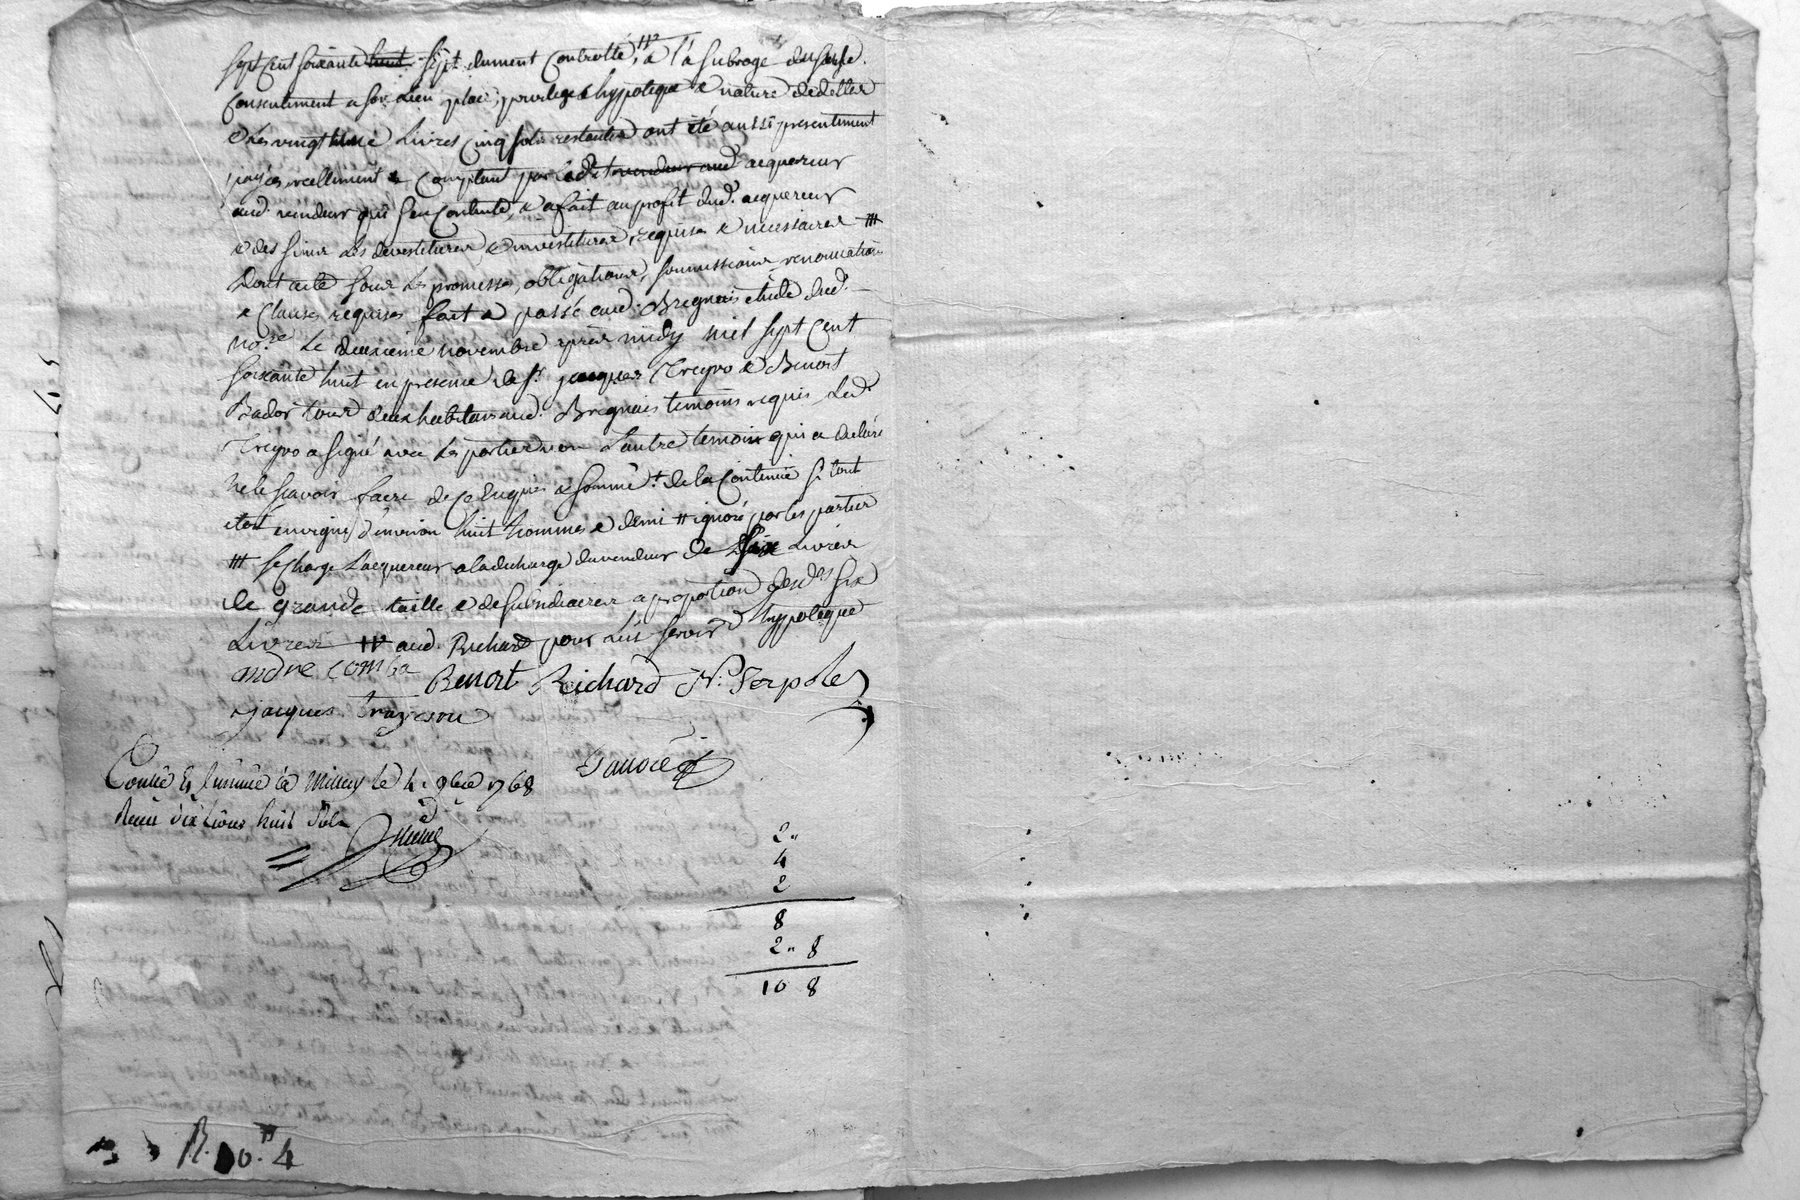 sept cent soixante huit sept dument Controllé, # a l'a subrogé du susd.
Consentiment a son lieu place, privilege & hypoteque & nature de dette
& les vingt une Livres Cinq sols restantes ont été aussi presentement
payées reellement & Comptant par led. vendeur aud. acquereur
aud. vendeur qui s'en Contente, & a fait au profit dud. acquereur
& des siens les devestitures & investitures requises & necessaires ///
Dont acte sous les promesses, obligations, soumissions, renonciations
& Clauses requises fait & passé aud. Brignais etude dud.
No.re Le deuxieme novembre après midy mil sept Cent
soixante huit en presence de Sr. jacques Treyvo & Benoit
Bador tous deux habitans aud. Brignais temoins requis Led.
Treyvo a signé avec les parties non L'autre temoin qui a declaré
ne le scavoir faire de Ce Enquis & sommé † de la Contenue
etant en vigne d'environ huit hommes & demi # ignoré par les parties
/// se Charge L'acquereur a la decharge du vendeur de six Livres
de grande taille & de subsidiaires a proportion desd. six
Livres # aud. Richard pour lui servir d'hypoteque
andre Comba Benoit Richard N. Serpolet
jacques
Conllé Et Insinué à Millery le 4. 9bre 1768
Receu dix Livres huit Sols
2"
4
2
8
2" 8
10 8
R. 4